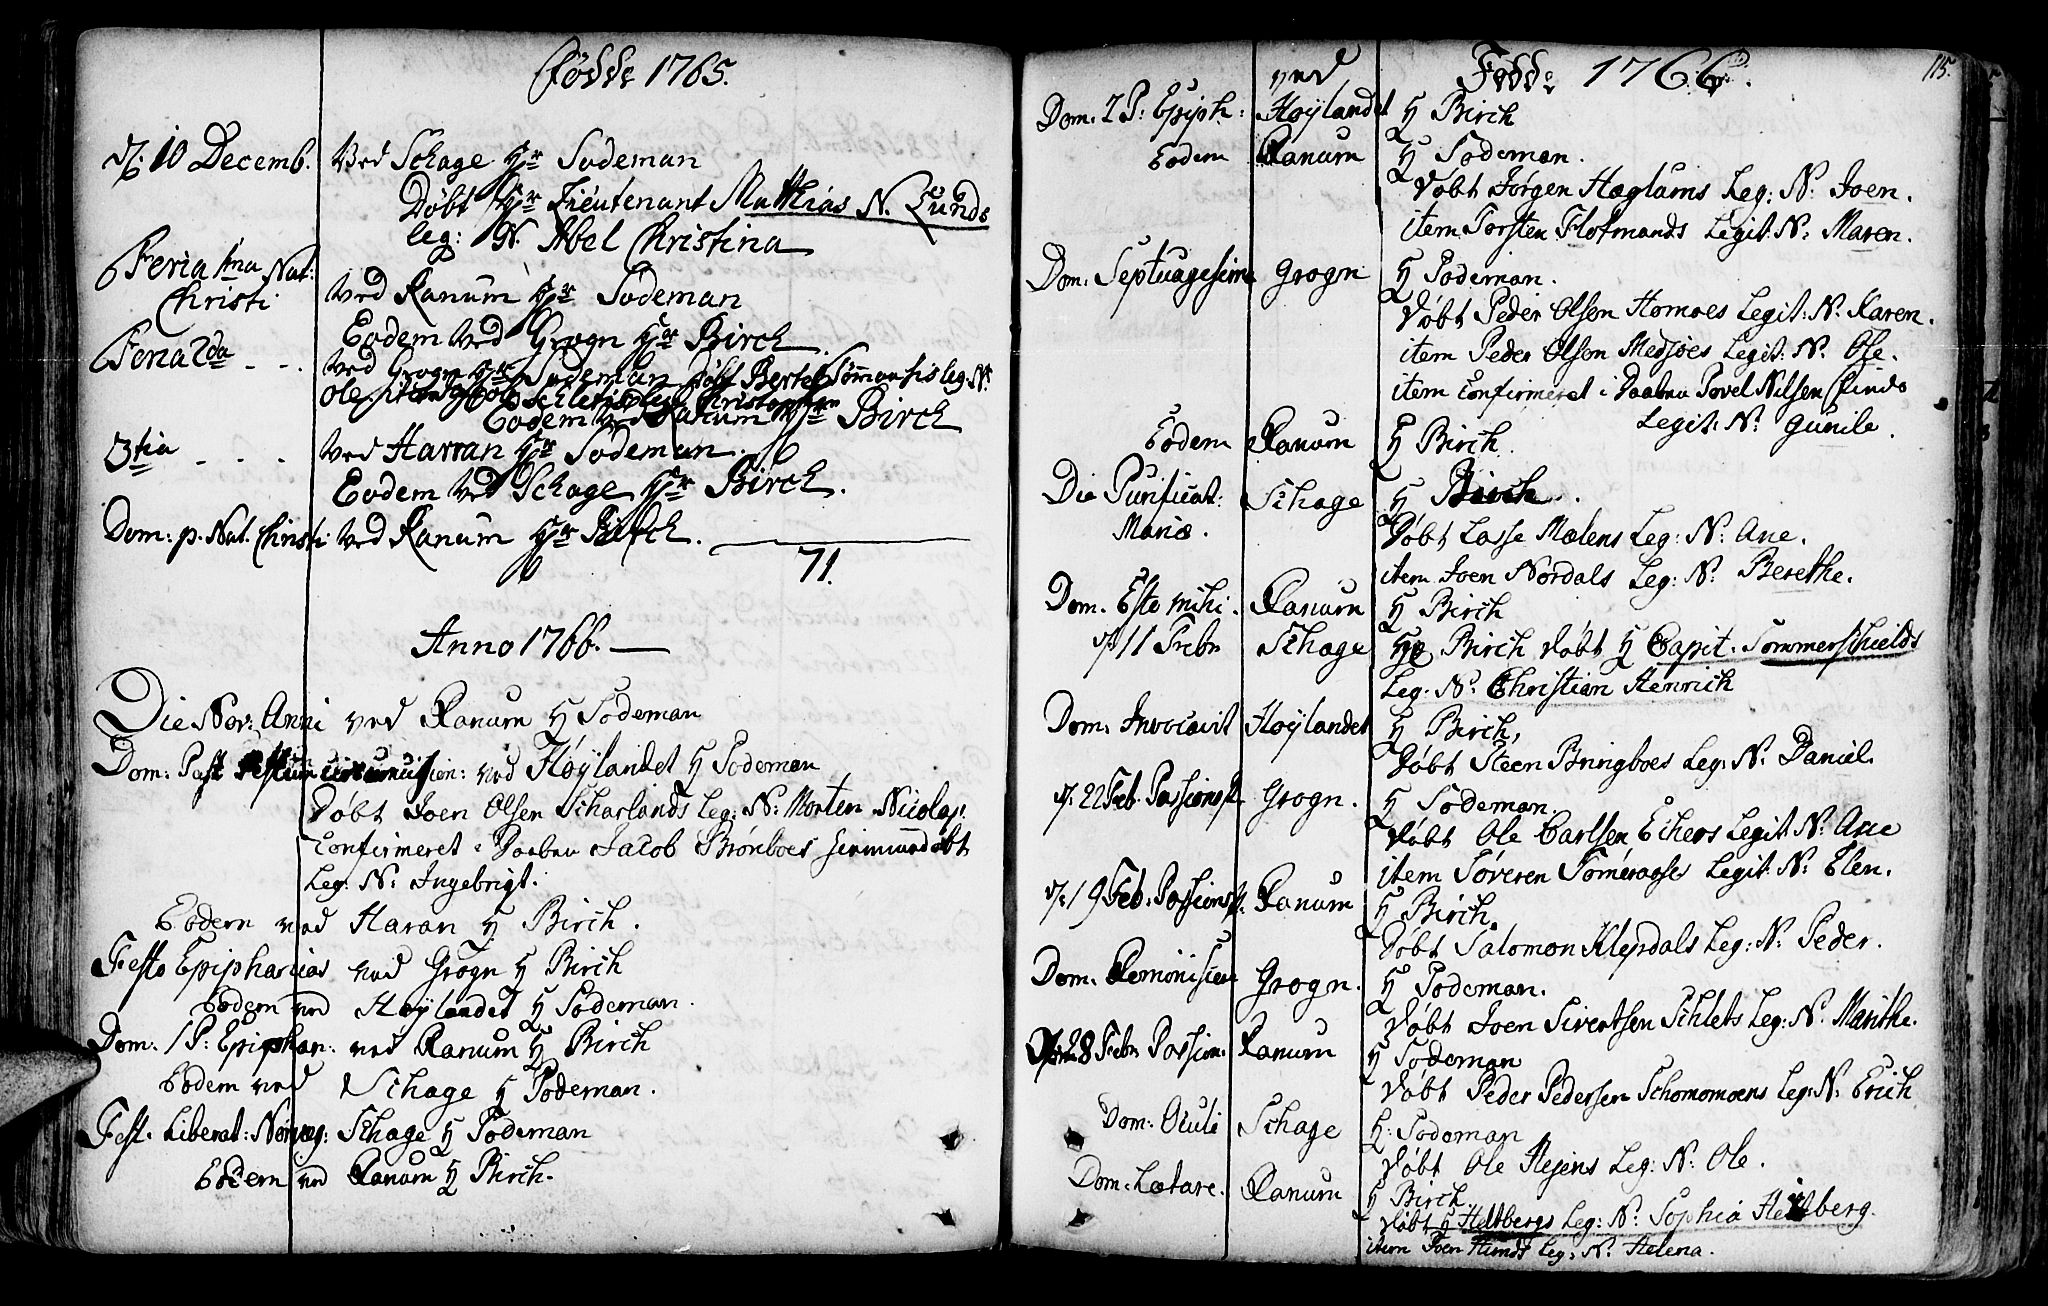 Fødde 1765.
d. 10 Decemb. ved Schage Hr Sodeman
Døbt Hr Lieutenant Matthias N. Lunds
leg: N. Abel Christina
Feria 1ma Nat: Christi ved Ranum Hr Sodeman
Eodem ved Grogn Hr Birch
Feria 2da - - - ved Grogn Hr Sodeman døbt Bertel leg. N.
Ole. item
Eodem ved Ranum Hr Birch
3tia - - - ved Harran Hr Sodeman.
Eodem ved Schage Hr Birch.
Dom: p. Nat. Christi ved Ranum Hr Birch.
71.
Anno 1766.
Die Nov: Anni ved Ranum H Sodeman
Dom: Post Festum circumcision: ved Høylandet H Sodeman
Døbt Joen Olsen Scharlands Leg: N: Morten Nicolaj.
Confirmeret i Daaben Jacob Brønboes hiemmedøbt
Leg: N: Ingebrigt.
Eodem ved Haran H Birch.
Festo Epiphanias ved Grogn H Birch
Eodem ved Høylandet H Sodeman.
Dom. 1 P: Epiphan: ved Ranum H Birch
Eodem ved Schage H Sodeman.
Fest. Liberat: Norveg: Schage H Sodeman
Eodem ved Ranum H Birch.
115.
ved Fødde 1766.
Dom. 2 P. Epiph: Høylandet H Birch
Eodem Ranum H Sodeman.
Døbt Jørgen Hæglums Leg: N: Joen.
item Torsten Flotmands Legit: N: Maren.
Dom: Septuagesima Grogn H Sodeman.
Døbt Peder Olsen Homoes Legit: N. Karen.
item Peder Olsen Medjøes Legit: N: Ole.
item Confirmeret i Daaben Povel Nilsen
Legit: N: Gunile.
Eodem Ranum H Birch.
Die Purificat: Mariæ. Schage H Birch.
Døbt Lasse Mælens Leg: N: Ane.
item Joen Nordals Leg: N: Berethe.
Dom. Esto mihi. Ranum H Birch
d. 11 Febr Schage H Birch døbt H Capit. Sommerschields
Leg: N: Christian Henrich
Dom: Invocavit Høylandet H Birch,
Døbt Steen Bringboes Leg: N: Daniel.
d. 22 Feb. Passionsp. Grogn. H Sodeman.
Døbt Ole Carlsen Ekers Legit: N: Ane
item Søveren Leg: N: Elen.
d. 19 Feb. Passionsp. Ranum H Birch,
Døbt Salomon Klepdals Leg: N: Peder.
Dom. Reminiscere Grogn. H Sodeman.
Døbt Joen Sivertsen Schlets Leg: N: Marithe.
28 Febr Passion. Ranum H Sodeman
Døbt Peder Pedersen Schomomoens Leg: N: Erich
Dom: Oculi Schage H: Sodeman
Døbt Ole Leg: N: Ole.
Dom: Lætare. Ranum H Birch.
Døbt H Heltbergs Leg: N: Sophia Heltberg.
item Joen Leg: N: Helena.